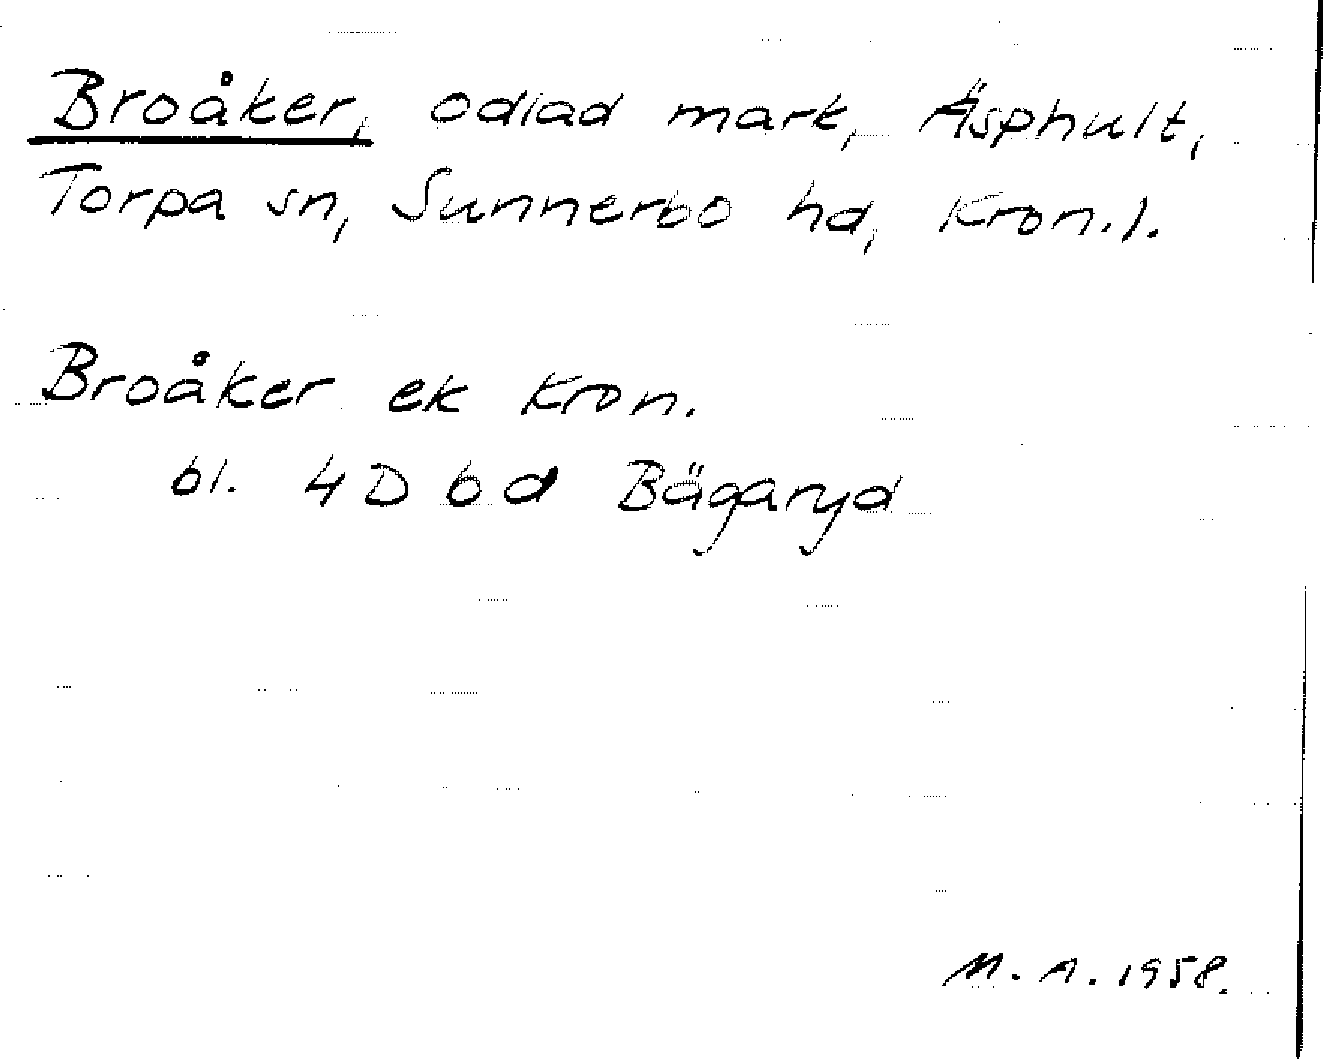 Broåker, odlad mark, Äsphult,
Torpa sn, Sunnerbo hd, Kron.l.
Broåker ek Kron.
bl. 4 D b d Bägaryd
M. A. 1958.